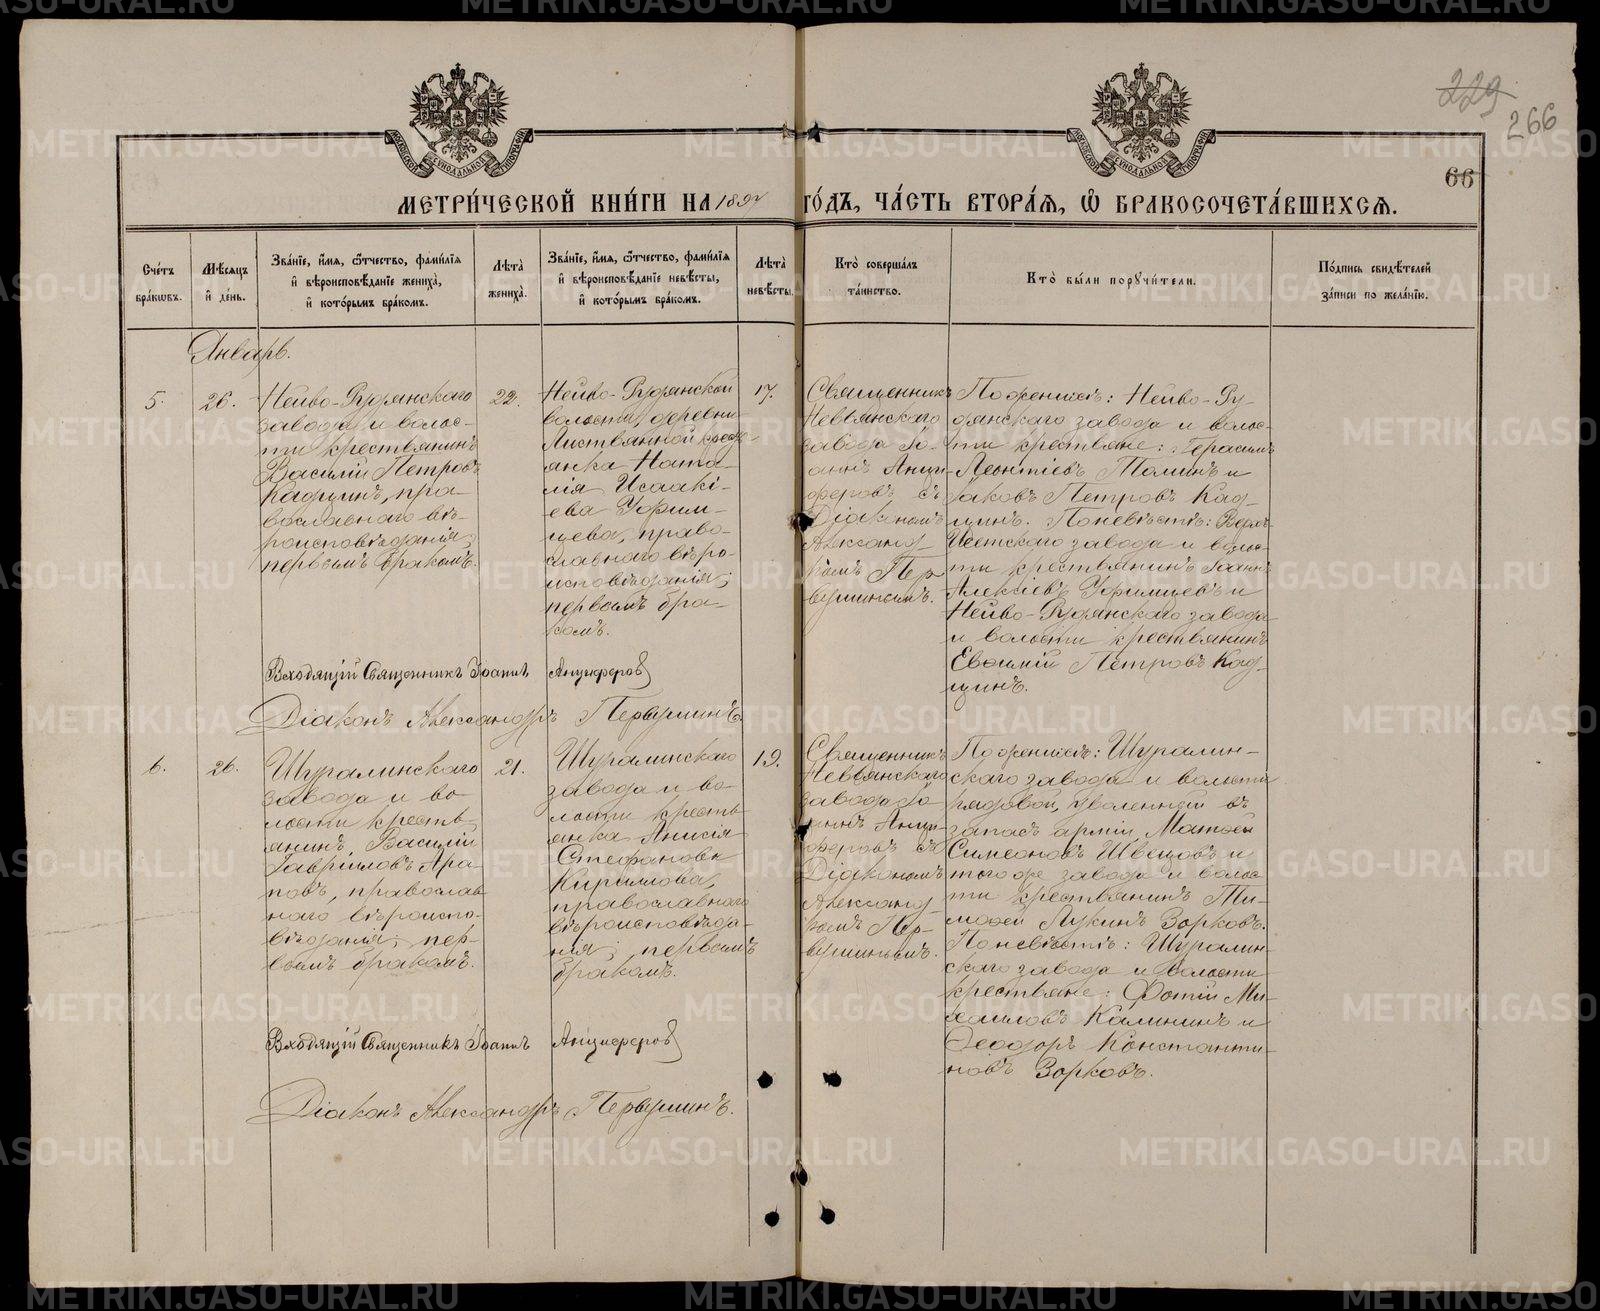 229
266
66
МЕТРИ́ЧЕСКОЙ КНИ́ГИ НА 1892 ГО́ДЪ, ЧА́СТЬ ВТОРА́Я, Ѽ БРАКОСОЧЕТА́ВШИХСЯ.
Сче́тъ бра́кѡвъ.
Мѣ́сяцъ й де́нь.
Зва́нїе, и́мя, ѻ́тчество, фами́лїя
й вѣроисповѣ́данїе жениха̀,
й кото́рымъ бра́комъ.
Лѣ́та жениха̀.
Зва́нїе, и́мя, ѻ́тчество, фами́лїя
й вѣроисповѣ́данїе невѣ́сты,
й кото́рымъ бра́комъ.
Лѣ́та невѣ́сты.
Кто̀ соверша́лъ
та́инство.
Кто̀ бы́ли поручи́тели.
По́дпись свидѣ́телей
за́писи по жела́нїю.
Январь.
5.
26.
Нейво-Рудянскаго
завода и волос-
ти крестьянинъ
Василій Петровъ
Кадцинъ, пра-
вославнаго вѣ-
роисповѣданія,
первымъ бракомъ.
22.
Нейво-Рудянской
волости, деревни
Листвянной кресть-
янка Ната-
лія Исаакі-
ева Уфим-
цева, право-
славнаго вѣро-
исповѣданія;
первымъ бра-
комъ.
17.
Священникъ
Невьянскаго
завода Іо-
аннъ Анци-
феровъ съ
Діакономъ
Александ-
ромъ Пер-
вушинымъ.
По женихѣ: Нейво-Ру-
дянскаго завода и волос-
ти крестьяне: Герасимъ
Леонтіевъ Толинъ и
Іаковъ Петровъ Кад-
цинъ. По невѣстѣ: Верхъ-
Исетскаго завода и волос-
ти крестьянинъ Іоаннъ
Алексѣевъ Уфимцевъ и
Нейво-Рудянскаго завода
и волости крестьянинъ
Евѳимій Петровъ Кад-
цинъ.
Входящій Священникъ Іоаннъ Анциферовъ
Діаконъ Александръ Первушинъ.
6.
26.
Шуралинскаго
завода и во-
лости кресть-
янинъ Василій
Гавріиловъ Ара-
повъ, православ-
наго вѣроиспо-
вѣданія; пер-
вымъ бракомъ.
21.
Шуралинскаго
завода и во-
лости кресть-
янка Анисія
Стефановна
Кириллова,
православнаго
вѣроисповѣда-
нія; первымъ
бракомъ.
19.
Священникъ
Невьянскаго
завода Іо-
аннъ Анци-
феровъ съ
Діакономъ
Александ-
ромъ Пер-
вушинымъ.
По женихѣ: Шуралин-
скаго завода и волости
рядовой, уволенный въ
запасъ арміи Матѳей
Симеоновъ Швецовъ и
того же завода и волос-
ти крестьянинъ Ти-
моѳей Лукинъ Зорковъ.
По невѣстѣ: Шуралин-
скаго завода и волости
крестьяне: Фотій Ми-
хаиловъ Калининъ и
Ѳеодоръ Константи-
новъ Зорковъ.
Входящій Священникъ Іоаннъ Анциферовъ
Діаконъ Александръ Первушинъ.
METRIKI.GASO-URAL.RU